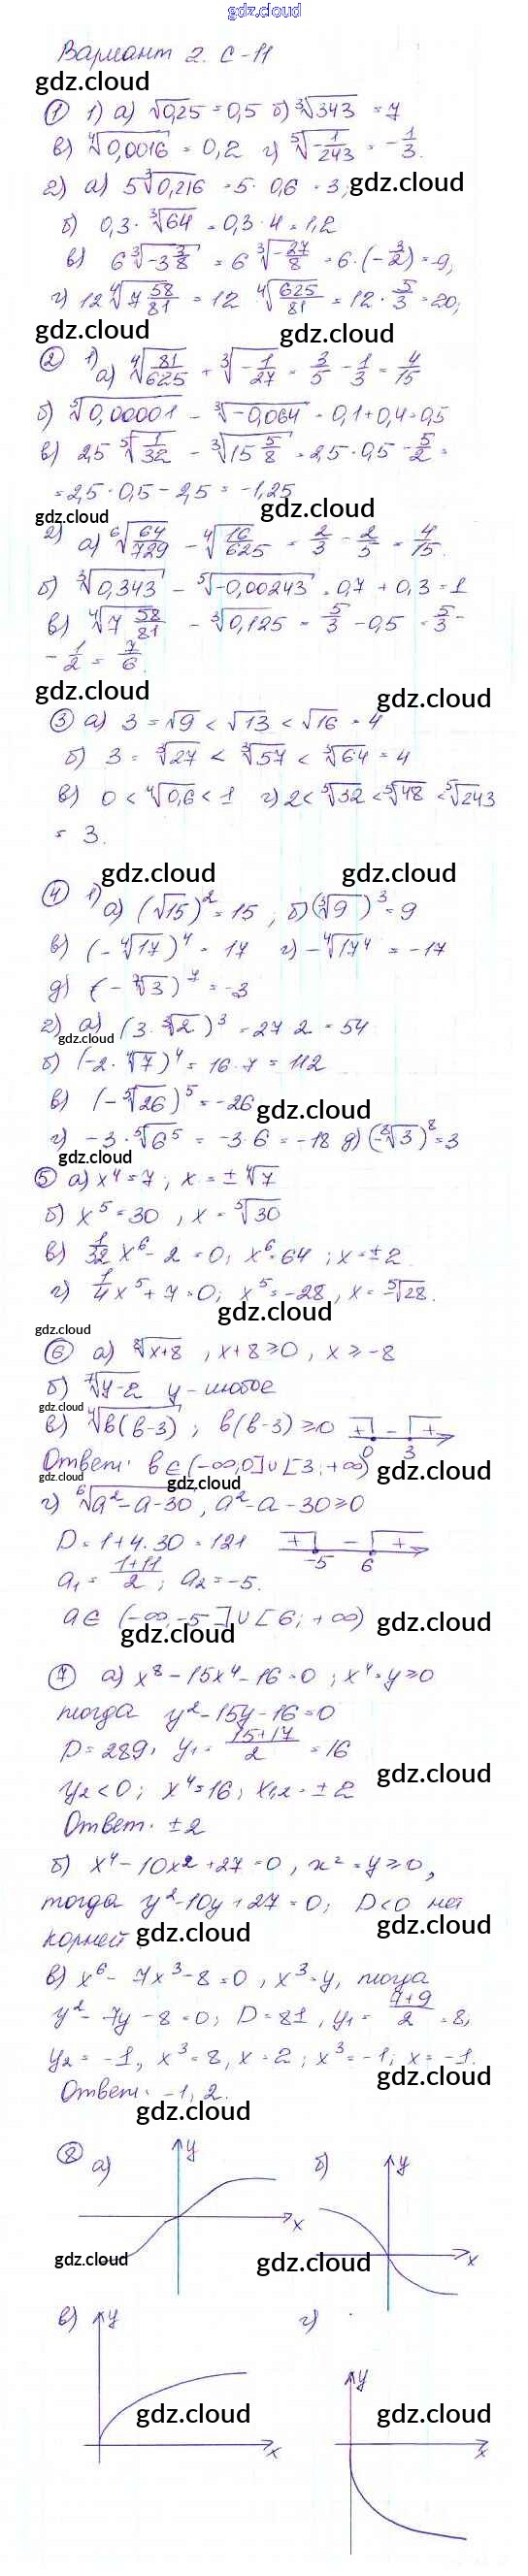 gdz.cloud
Вариант 2. С-11
gdz.cloud
① 1) а) √0,25 = 0,5 б) ³√343 = 7
в) ⁴√0,0016 = 0,2 г) ⁵√-1/243 = -1/3.
2) а) 5 ³√0,216 = 5 · 0,6 = 3; gdz.cloud
б) 0,3 · ³√64 = 0,3 · 4 = 1,2
в) 6 ³√-3 3/8 = 6 ³√-27/8 = 6 · (-3/2) = -9;
г) 12 ⁴√7 58/81 = 12 ⁴√625/81 = 12 · 5/3 = 20;
gdz.cloud gdz.cloud
② 1) а) ⁴√81/625 + ³√-1/27 = 3/5 - 1/3 = 4/15
б) ⁵√0,00001 - ³√-0,064 = 0,1 + 0,4 = 0,5
в) 2,5 ⁵√1/32 - ³√15 5/8 = 2,5 · 0,5 - 5/2 =
= 2,5 · 0,5 - 2,5 = -1,25
gdz.cloud gdz.cloud
2) а) ⁶√64/729 - ⁴√16/625 = 2/3 - 2/5 = 4/15.
б) ³√0,343 - ⁵√-0,00243 = 0,7 + 0,3 = 1
в) ⁴√7 58/81 - ³√0,125 = 5/3 - 0,5 = 5/3 -
- 1/2 = 7/6.
gdz.cloud gdz.cloud
③ а) 3 = √9 < √13 < √16 = 4
б) 3 = ³√27 < ³√57 < ³√64 = 4
в) 0 < ⁴√0,6 < 1 г) 2 < ⁵√32 < ⁵√48 < ⁵√243
= 3.
gdz.cloud gdz.cloud
④ 1) а) (√15)² = 15; б) (³√9)³ = 9
в) (-⁴√17)⁴ = 17 г) -⁴√17⁴ = -17
д) (-⁷√3)⁷ = -3
2) а) (3 · ³√2)³ = 27 · 2 = 54
gdz.cloud
б) (-2 · ⁴√7)⁴ = 16 · 7 = 112
в) (-⁵√26)⁵ = -26 gdz.cloud
г) -3 · ⁵√6⁵ = -3 · 6 = -18 д) (-⁸√3)⁸ = 3
gdz.cloud
⑤ а) x⁴ = 7; x = ±⁴√7
б) x⁵ = 30, x = ⁵√30
в) 1/32 x⁶ - 2 = 0; x⁶ = 64; x = ±2
г) 1/4 x⁵ + 7 = 0; x⁵ = -28, x = -⁵√28.
gdz.cloud
gdz.cloud
⑥ а) ⁸√x+8, x+8 ≥ 0, x ≥ -8
б) ⁷√y-2 y - любое
gdz.cloud
в) ⁴√b(b-3); b(b-3) ≥ 0 + - + 0 3
Ответ: b ∈ (-∞; 0] ∪ [3; +∞) gdz.cloud
gdz.cloud gdz.cloud
г) ⁶√a²-a-30, a² - a - 30 ≥ 0
D = 1 + 4 · 30 = 121 + - + -5 6
a₁ = 1+11/2; a₂ = -5.
a ∈ (-∞; -5] ∪ [6; +∞) gdz.cloud
gdz.cloud
⑦ а) x⁸ - 15x⁴ - 16 = 0; x⁴ = y ≥ 0
тогда y² - 15y - 16 = 0
D = 289, y₁ = 15+17/2 = 16
gdz.cloud
y₂ < 0; x⁴ = 16; x₁,₂ = ±2
Ответ: ±2
б) x⁴ - 10x² + 27 = 0, x² = y ≥ 0,
тогда y² - 10y + 27 = 0; D < 0 нет
корней gdz.cloud gdz.cloud
в) x⁶ - 7x³ - 8 = 0, x³ = y, тогда
y² - 7y - 8 = 0; D = 81, y₁ = 7+9/2 = 8,
y₂ = -1, x³ = 8, x = 2; x³ = -1; x = -1.
gdz.cloud
Ответ: -1, 2.
gdz.cloud
⑧ а) y x б) y x
gdz.cloud gdz.cloud
в) y x г) y x
gdz.cloud gdz.cloud